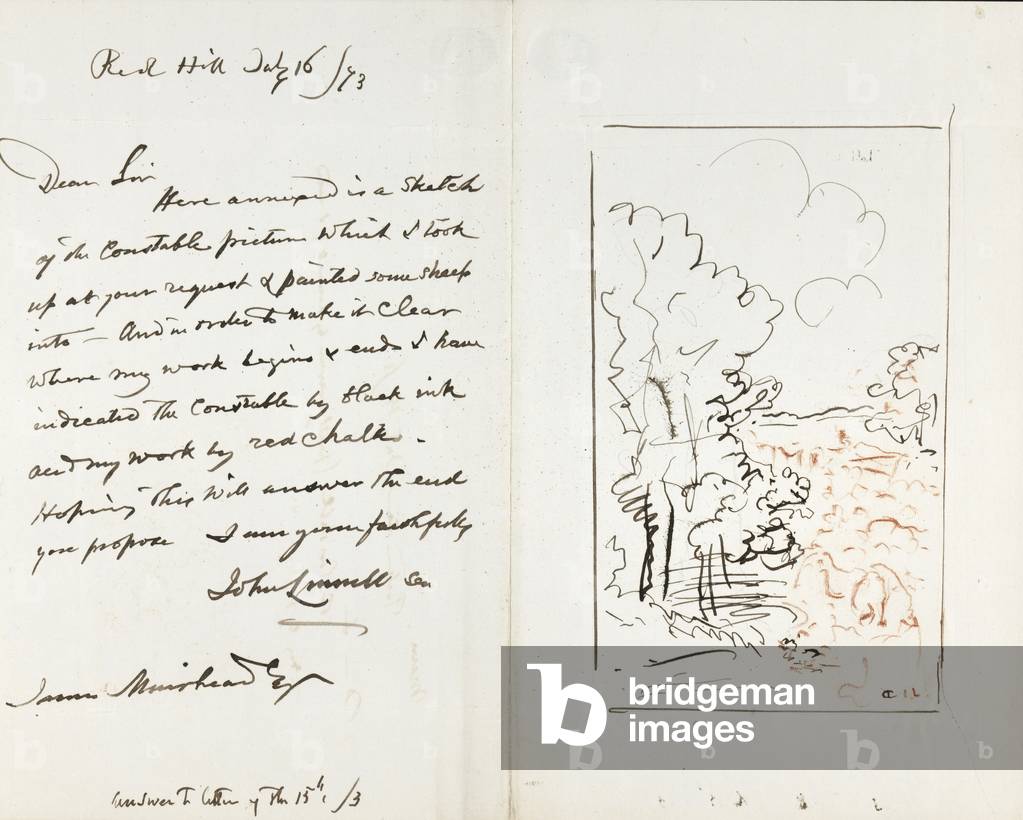 Red Hill July 16 /73
Dear Sir
Here annexed is a sketch
of the Constable picture which I took
up at your request & painted some sheep
into – And in order to make it clear
where my work begins & ends I have
indicated the Constable by black ink
and my work by red chalk .
Hoping this will answer the end
you propose I am yours faithfully
John Linnell Sen
James Muirhead Esqr
answer to letter of the 15th /3
bridgeman
images